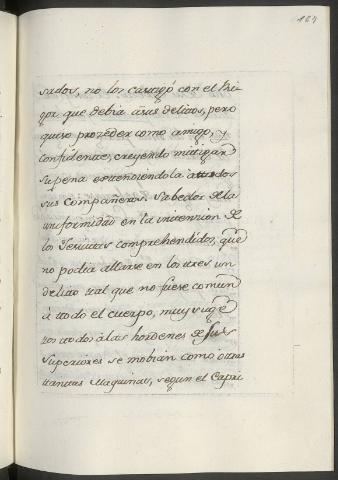 187
sados, no los castigó con el Ri-
gor que debia á sus delitos, pero
quiso prozeder como amigo, y
confidente, creyendo mitigar
su pena estendiendola a todos
sus compañeros. Sabedor de la
uniformidad en la intension de
los Jesuitas comprehendidos, que
no podia allarse en los tres un
delito tal que no fuese comun
á todo el cuerpo, muy suge-
tos todos á las hordenes de sus
Superiores se mobian como otras
tantas Maquinas, segun el Capri